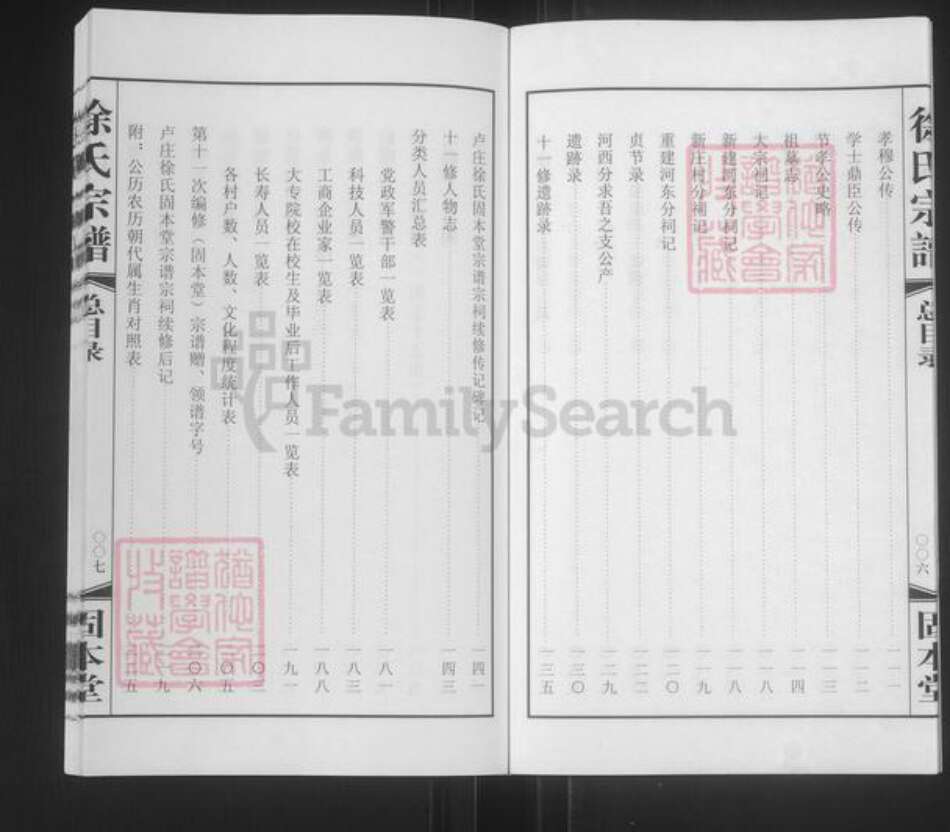 徐氏宗谱
总目录
〇〇六
固本堂
孝穆公传 一一一
学士鼎臣公传 一一二
节孝公史略 一一三
祖墓志 一一四
大宗祠记 一一八
新建河东分祠记 一一八
新庄村分祠记 一一九
重建河东分祠记 一二〇
贞节录 一二二
河西分求吾之支公产 一二九
遗跡录 一三〇
十一修遗跡录 一三五
卢庄徐氏固本堂宗谱宗祠续修传记
一四一
十一修人物志 一四三
分类人员汇总表
党政军警干部一览表 一八一
科技人员一览表 一八三
工商企业家一览表 一八八
大专院校在校生及毕业后工作人员一览表 一九一
长寿人员一览表
各村户数、人数、文化程度统计表
第十一次编修（固本堂）宗谱赠、领谱字号
卢庄徐氏固本堂宗谱宗祠续修后记
附：公历农历朝代属生肖对照表
徐氏宗谱
总目录
〇〇七
固本堂
FamilySearch